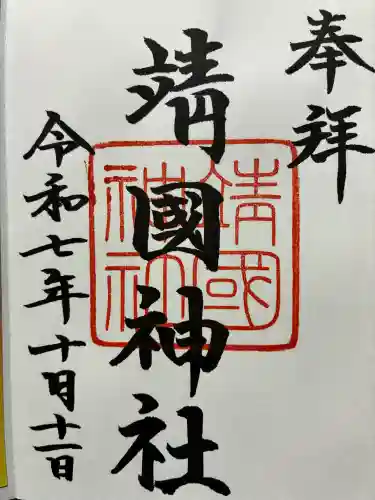 奉拝
靖國神社
靖國神社
令和七年十月十一日